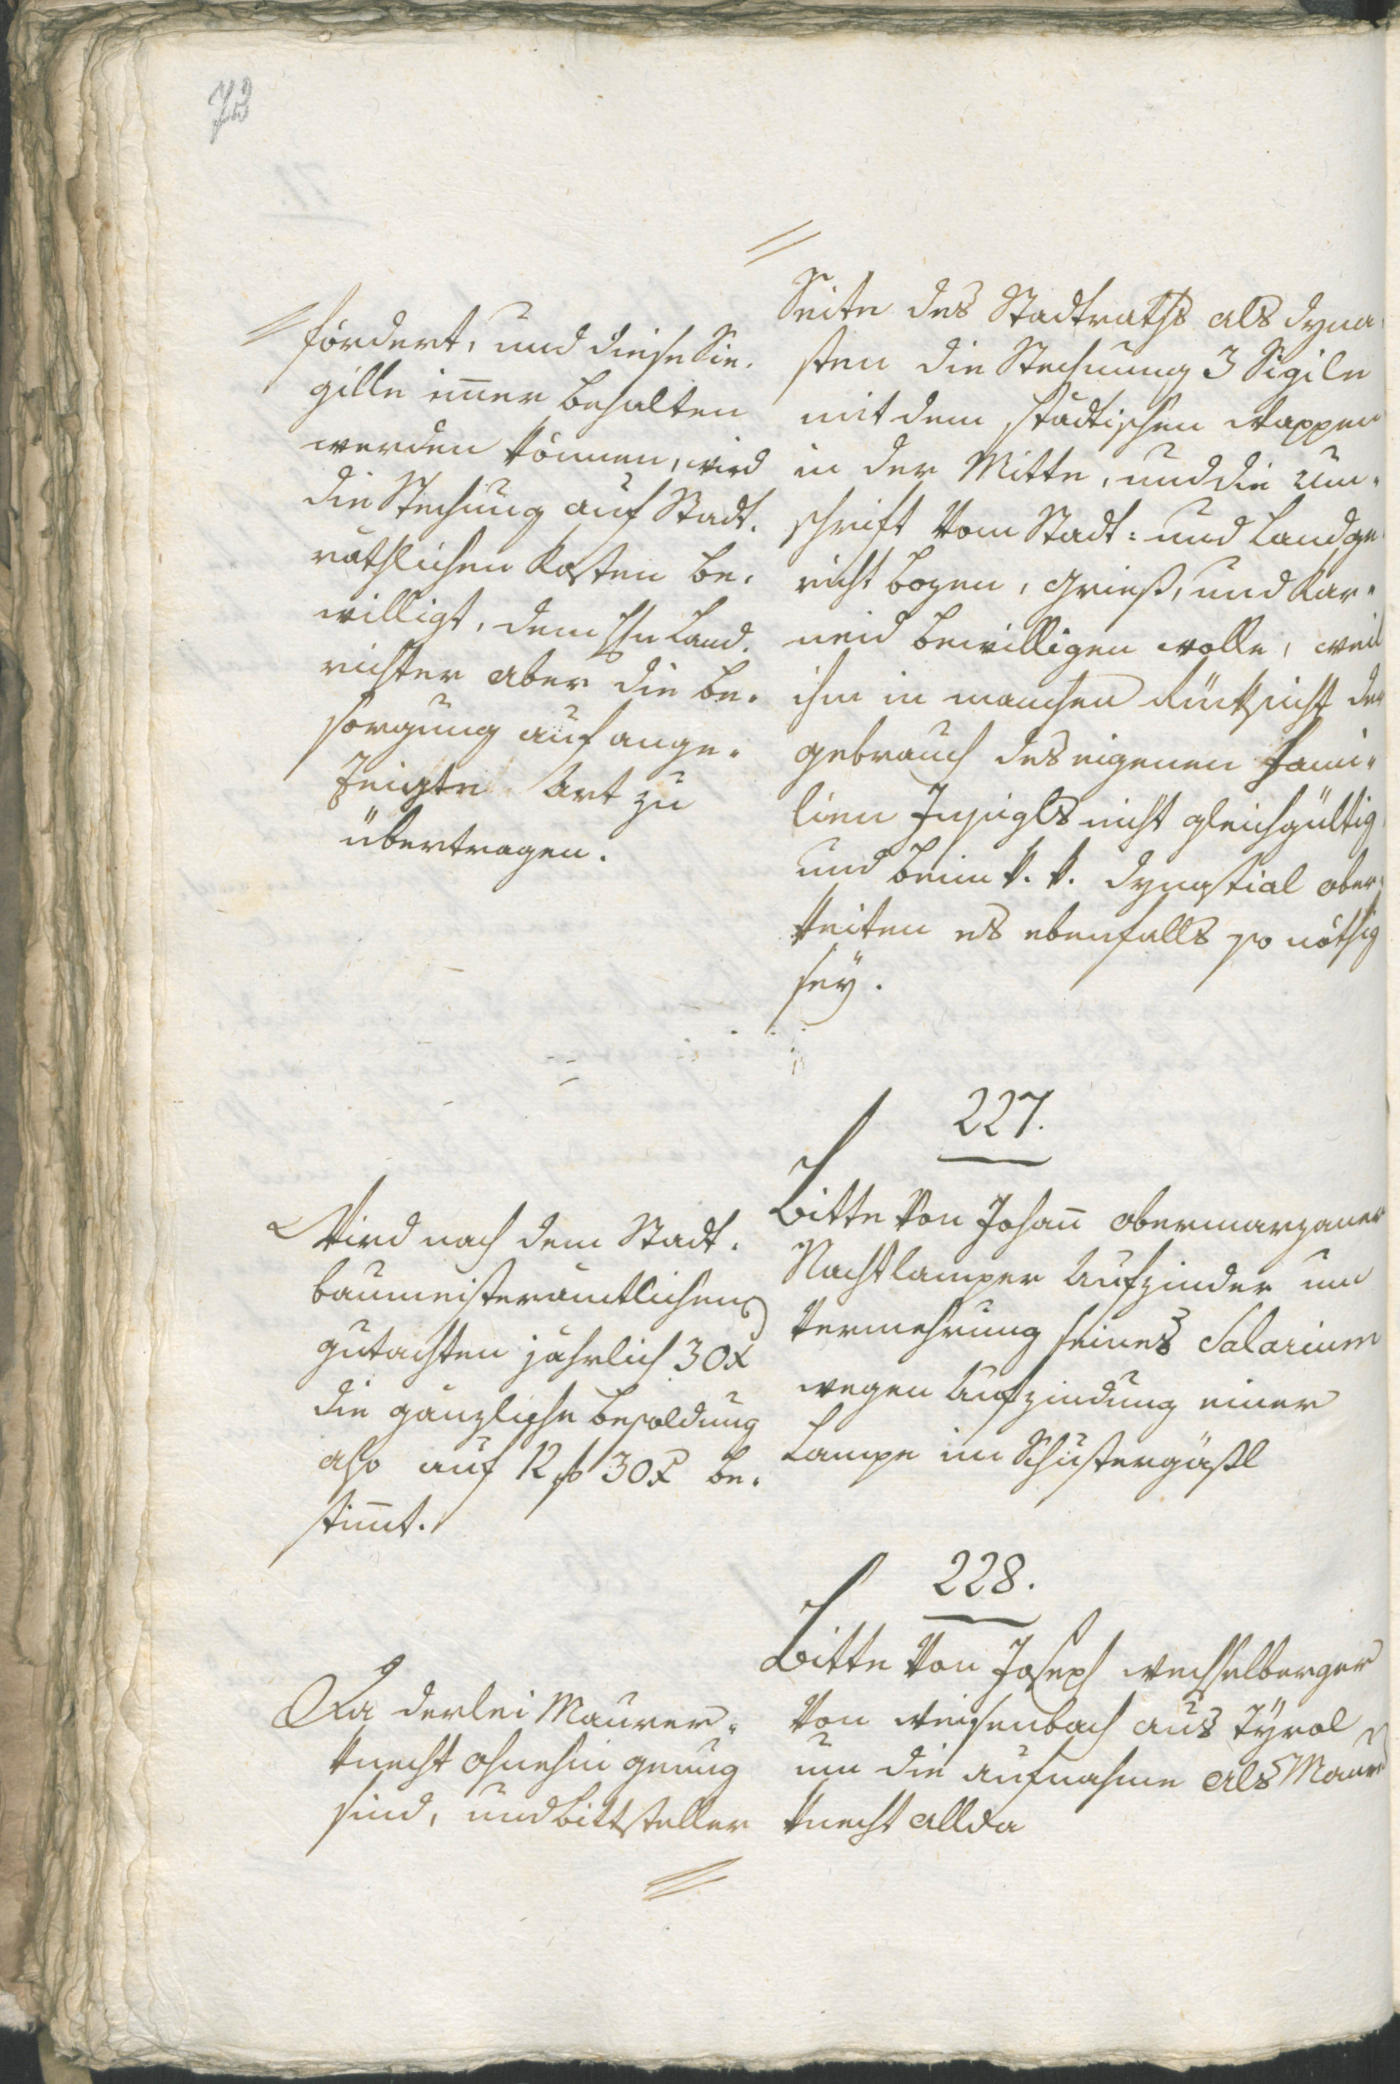 73
fördert, und diese Sie-
gille im̅er behalten
werden können, wird
die Stechung auf Stadt-
räthlichen Kosten be-
willigt, dem Hn Land-
richter aber die Be-
sorgung auf ange-
zeigte Art zu
übertragen.
Seite des Stadtraths als Dyna-
sten die Stechung 3 Sigile
mit dem städtischen Wappen
in der Mitte, und die Um-
schrift vom Stadt- und Landge-
richt Bozen, Grieß, und Kar-
neid bewilligen wolle, weil
ihm in manchen Rücksicht der
Gebrauch des eigenen Fami-
lien Insigls nicht gleichgültig
und beim k. k. Dynastial Ober-
keiten es ebenfalls so nöthig
sey.
227.
Bitte von Johan̅ Obermarzauer
Nachtlampen Aufzinder um
Vermehrung seines Salarium
wegen Aufzindung einer
Lampe im Schustergäßl
Wird nach dem Stadt-
baumeisterämtlichen
Gutachten jährlich 30 x
die gänzliche Besoldung
also auf 12 f 30 x be-
stim̅t.
228.
Bitte von Joseph Wechselberger
von Weisenbach aus Tÿrol
um die Aufnahme als Maurer
knecht allda
Da derlei Maurer-
knecht ohnehin genug
sind, und Bittsteller